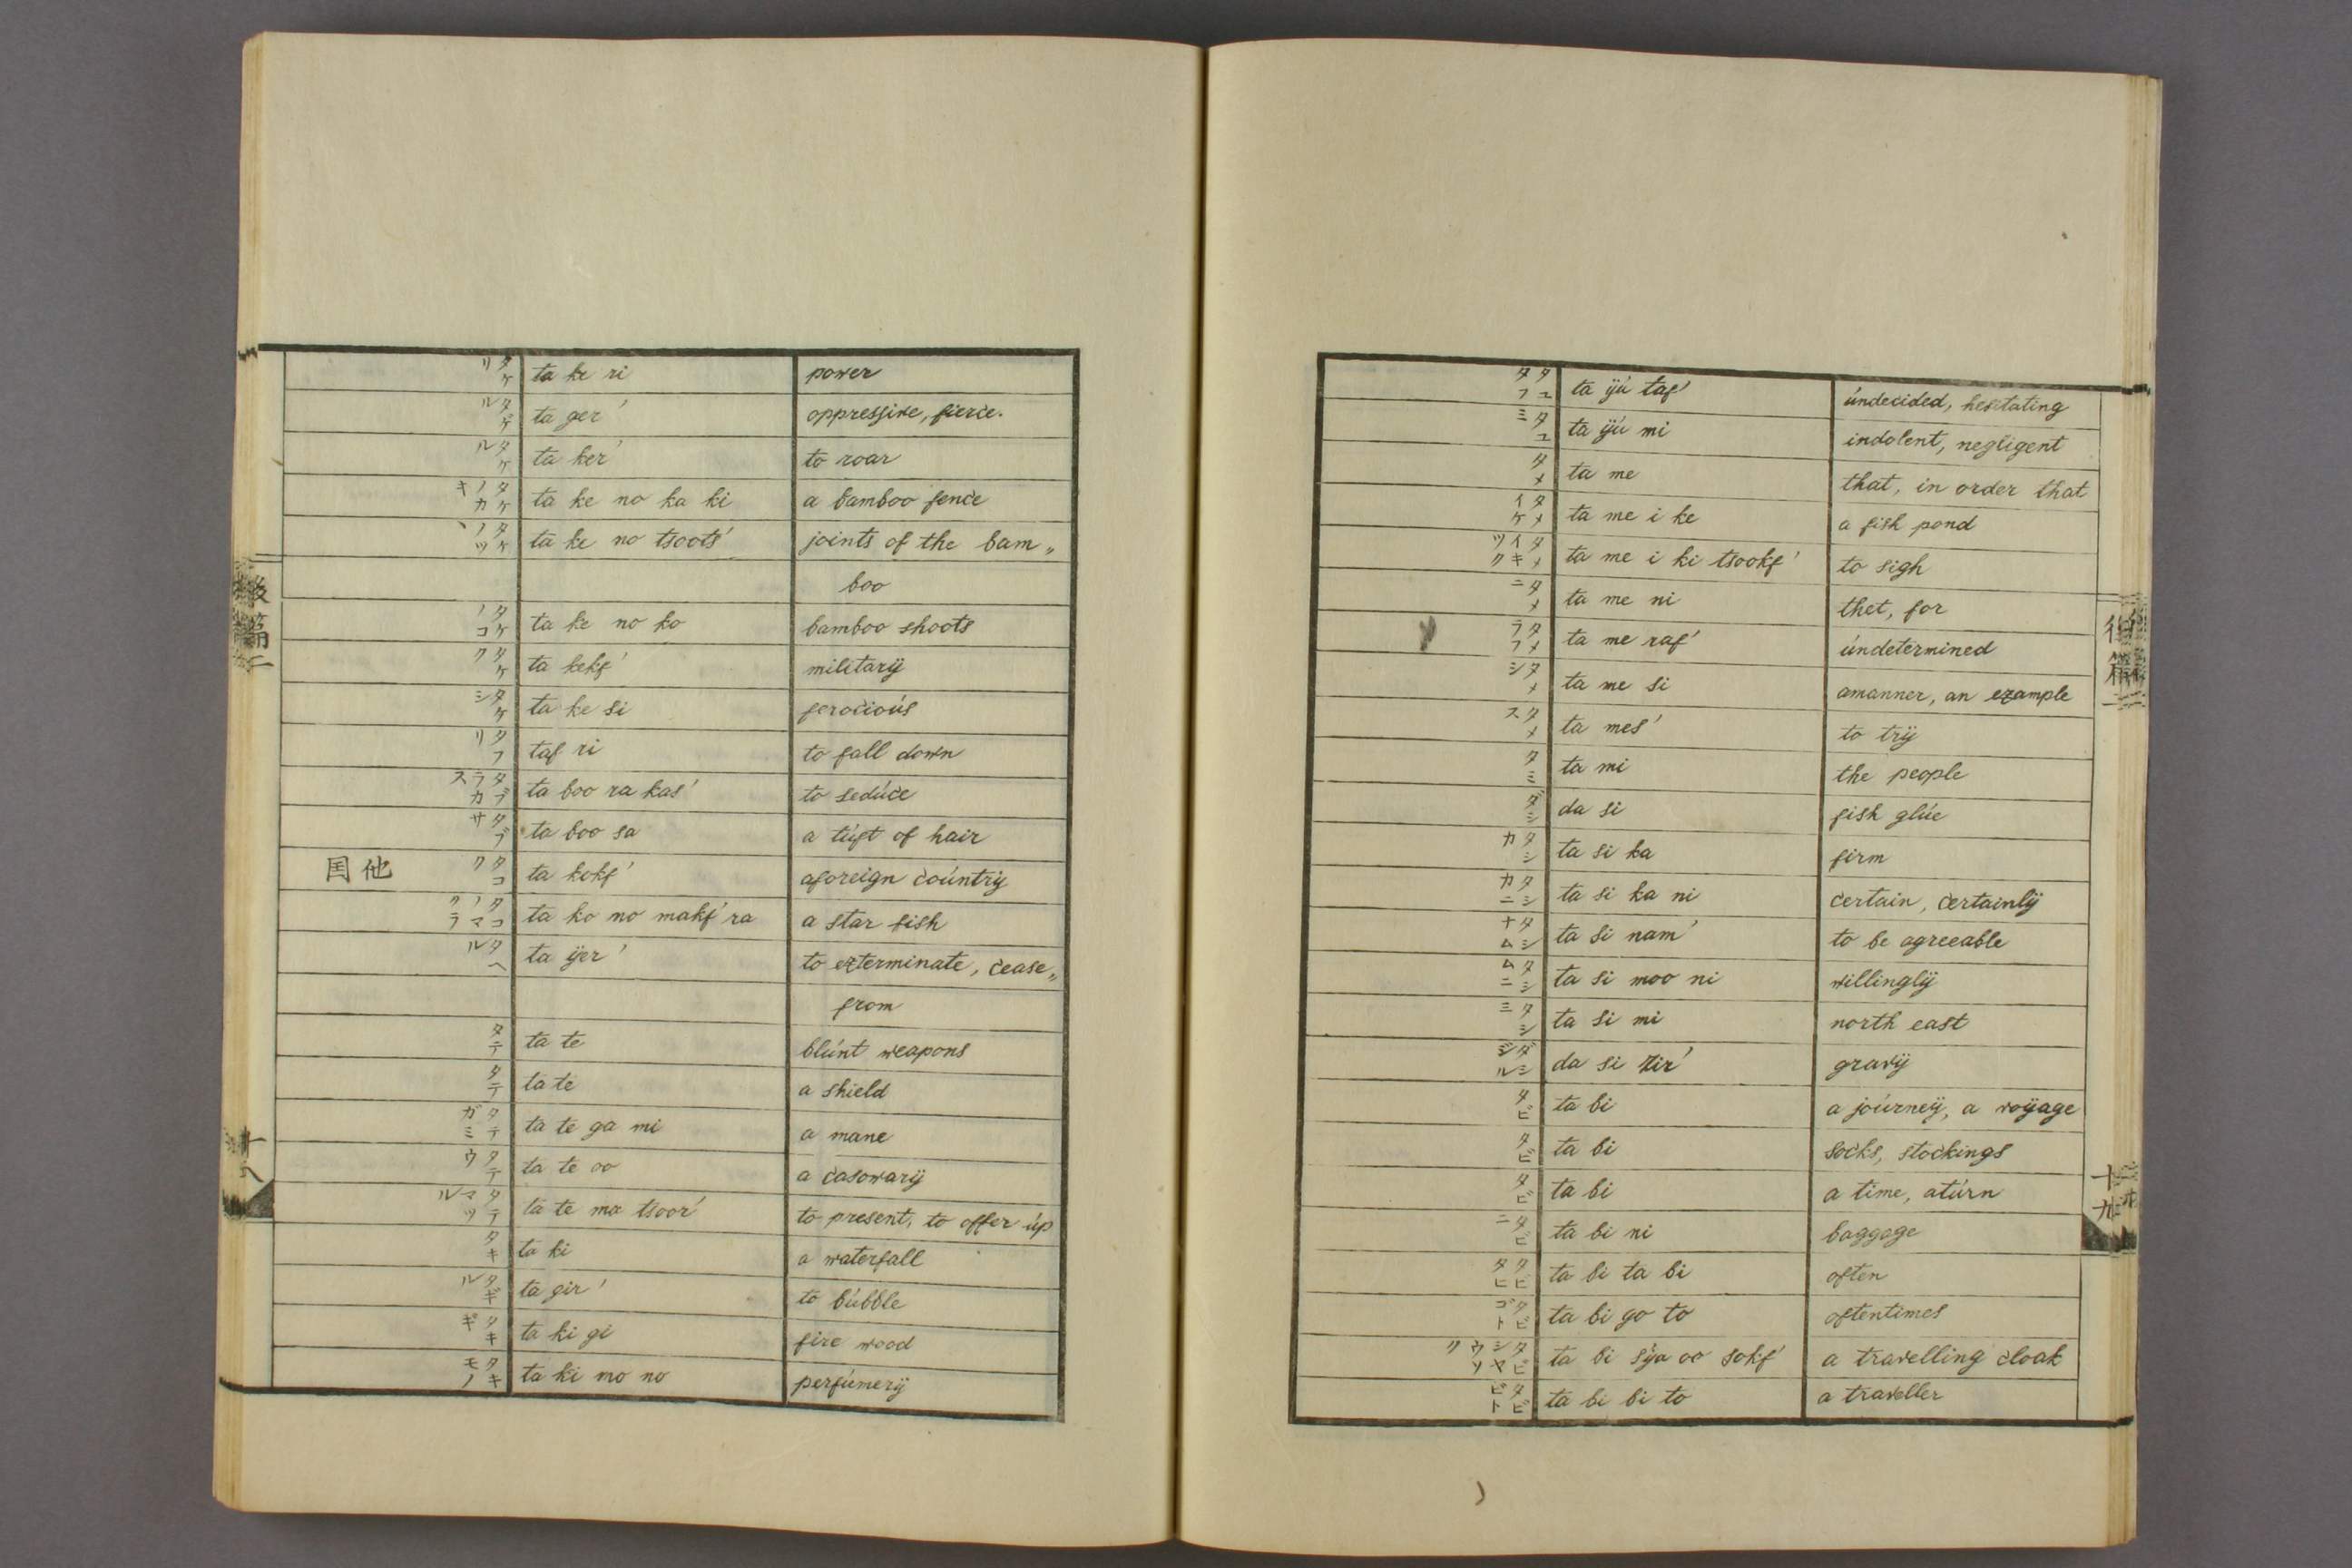 タケリ ta ke ri power
タゲル ta ger' oppressive, fierce.
タケル ta ker' to roar
タケノカキ ta ke no ka ki a bamboo fence
タケノツヽ ta ke no tsoots' joints of the bam„
boo
タケノコ ta ke no ko bamboo shoots
タケク ta kekf' military
タケシ ta ke si ferocioús
タフリ taf ri to fall down
タブラカス ta boo ra kas' to sedúce
タブサ ta boo sa a túft of hair
他国 タコク ta kokf' aforeign coúntry
タコノマクラ ta ko no makf' ra a star fish
タヘル ta ÿer' to exterminate, cease„
from
タテ ta te blúnt weapons
タテ ta te a shield
タテガミ ta te ga mi a mane
タテウ ta te oo a casowarÿ
タテマツル ta te ma tsoor' to present, to offer úp
タキ ta ki a waterfall
タギル ta gir' to búbble
タキギ ta ki gi fire wood
タキモノ ta ki mo no perfúmerÿ
後篇二
十八
タユタフ ta ÿú taf' úndecided, hesitating
タユミ ta ÿú mi indolent, negligent
タメ ta me that, in order that
タメイケ ta me i ke a fish pond
タメイキツク ta me i ki tsookf' to sigh
タメニ ta me ni thet, for
タメラフ ta me raf' úndetermined
タメシ ta me si amanner, an example
タメス ta mes' to trÿ
タミ ta mi the people
ダシ da si fish glúe
タシカ ta si ka firm
タシカニ ta si ka ni certain, certainlÿ
タシナム ta si nam' to be agreeable
タシムニ ta si moo ni willinglÿ
タシミ ta si mi north east
ダシジル da si zir' gravÿ
タビ ta bi a joúrneÿ, a voÿage
タビ ta bi socks, stockings
タビ ta bi a time, atúrn
タビニ ta bi ni baggage
タビタビ ta bi ta bi often
タビゴト ta bi go to oftentimes
タビシヤウソク ta bi sÿa oo sokf' a travelling cloak
タビビト ta bi bi to a traveller
後篇二
十九